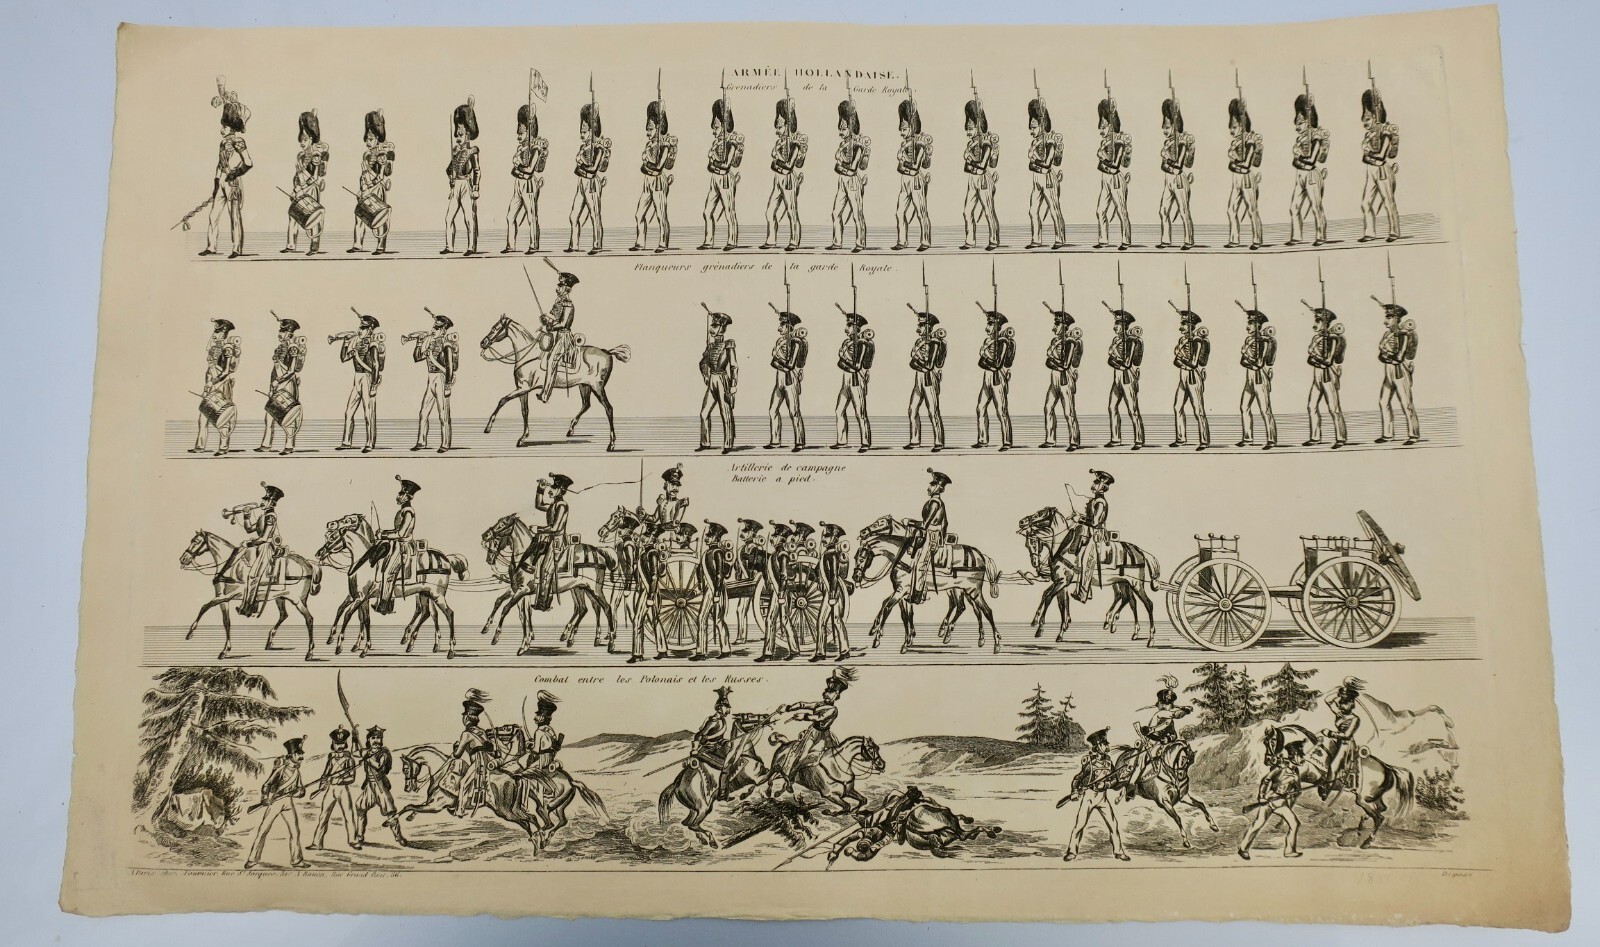 ARMÉE HOLLANDAISE.
Grenadiers de la Garde Royale
Flanqueurs grénadiers de la garde Royale.
Artillerie de campagne
Batterie a pied.
Combat entre les Polonais et les Russes.
A Paris chez Fournier, Rue St. Jacques,
Déposé